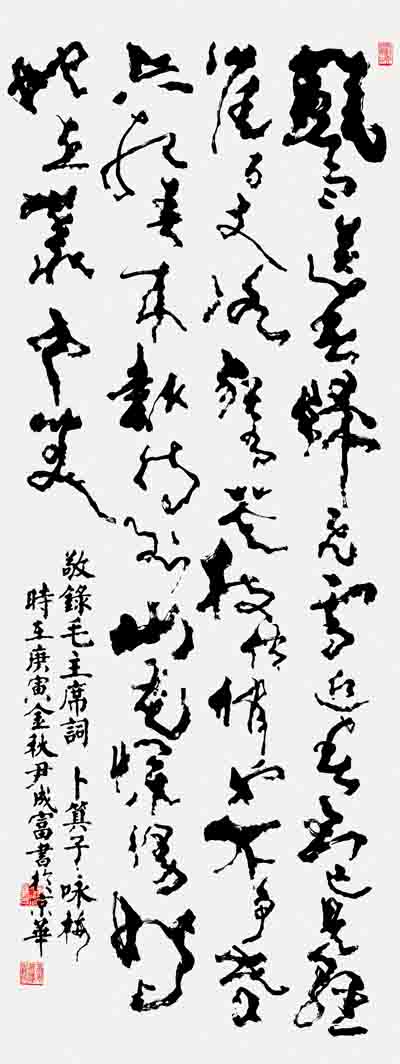 風雨送春歸飛雪迎春到已是懸
崖百丈冰猶有花枝俏俏也不爭春
只把春來報待到山花爛漫時
她在叢中笑
敬錄毛主席詞 卜算子·咏梅
時在庚寅金秋尹成富書於京華